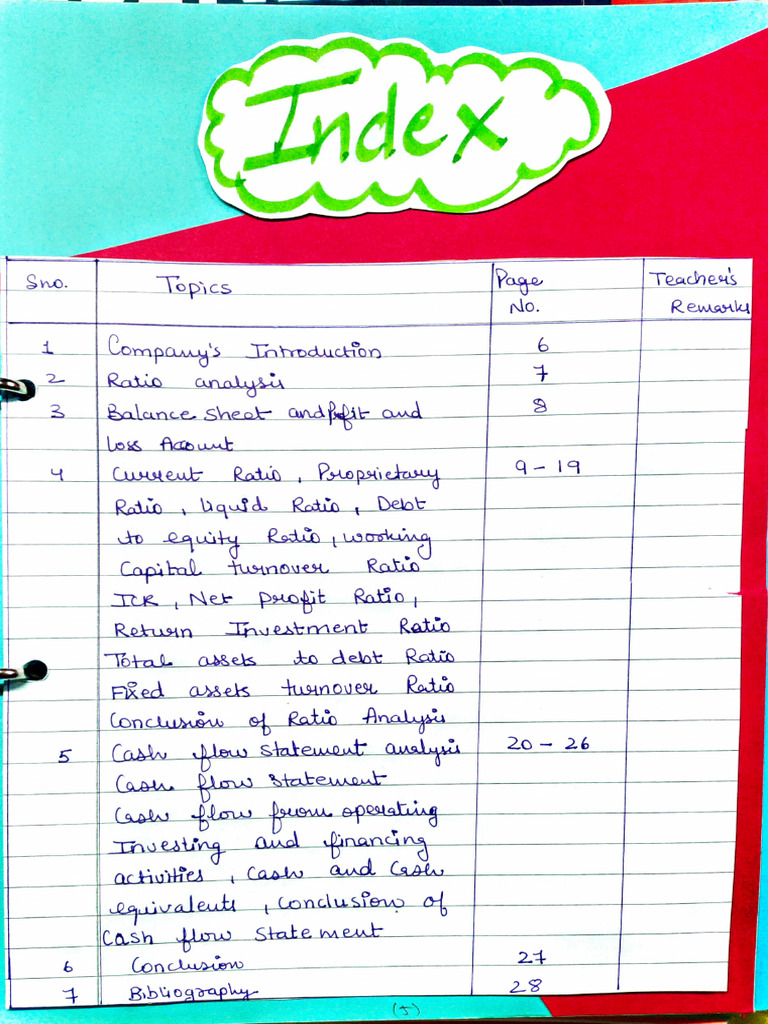 Index
Sno. Topics Page No. Teacher's Remarks
1 Company's Introduction 6
2 Ratio analysis 7
3 Balance sheet and Profit and 8
loss Account
4 Current Ratio, Proprietary 9-19
Ratio, liquid Ratio, Debt
to equity Ratio, working
Capital turnover Ratio
ICR, Net profit Ratio,
Return Investment Ratio
Total assets to debt Ratio
Fixed assets turnover Ratio
Conclusion of Ratio Analysis
5 Cash flow statement analysis 20-26
Cash flow statement
Cash flow from operating
Investing and financing
activities, Cash and Cash
equivalents, Conclusion of
Cash flow statement
6 Conclusion 27
7 Bibliography 28
(5)